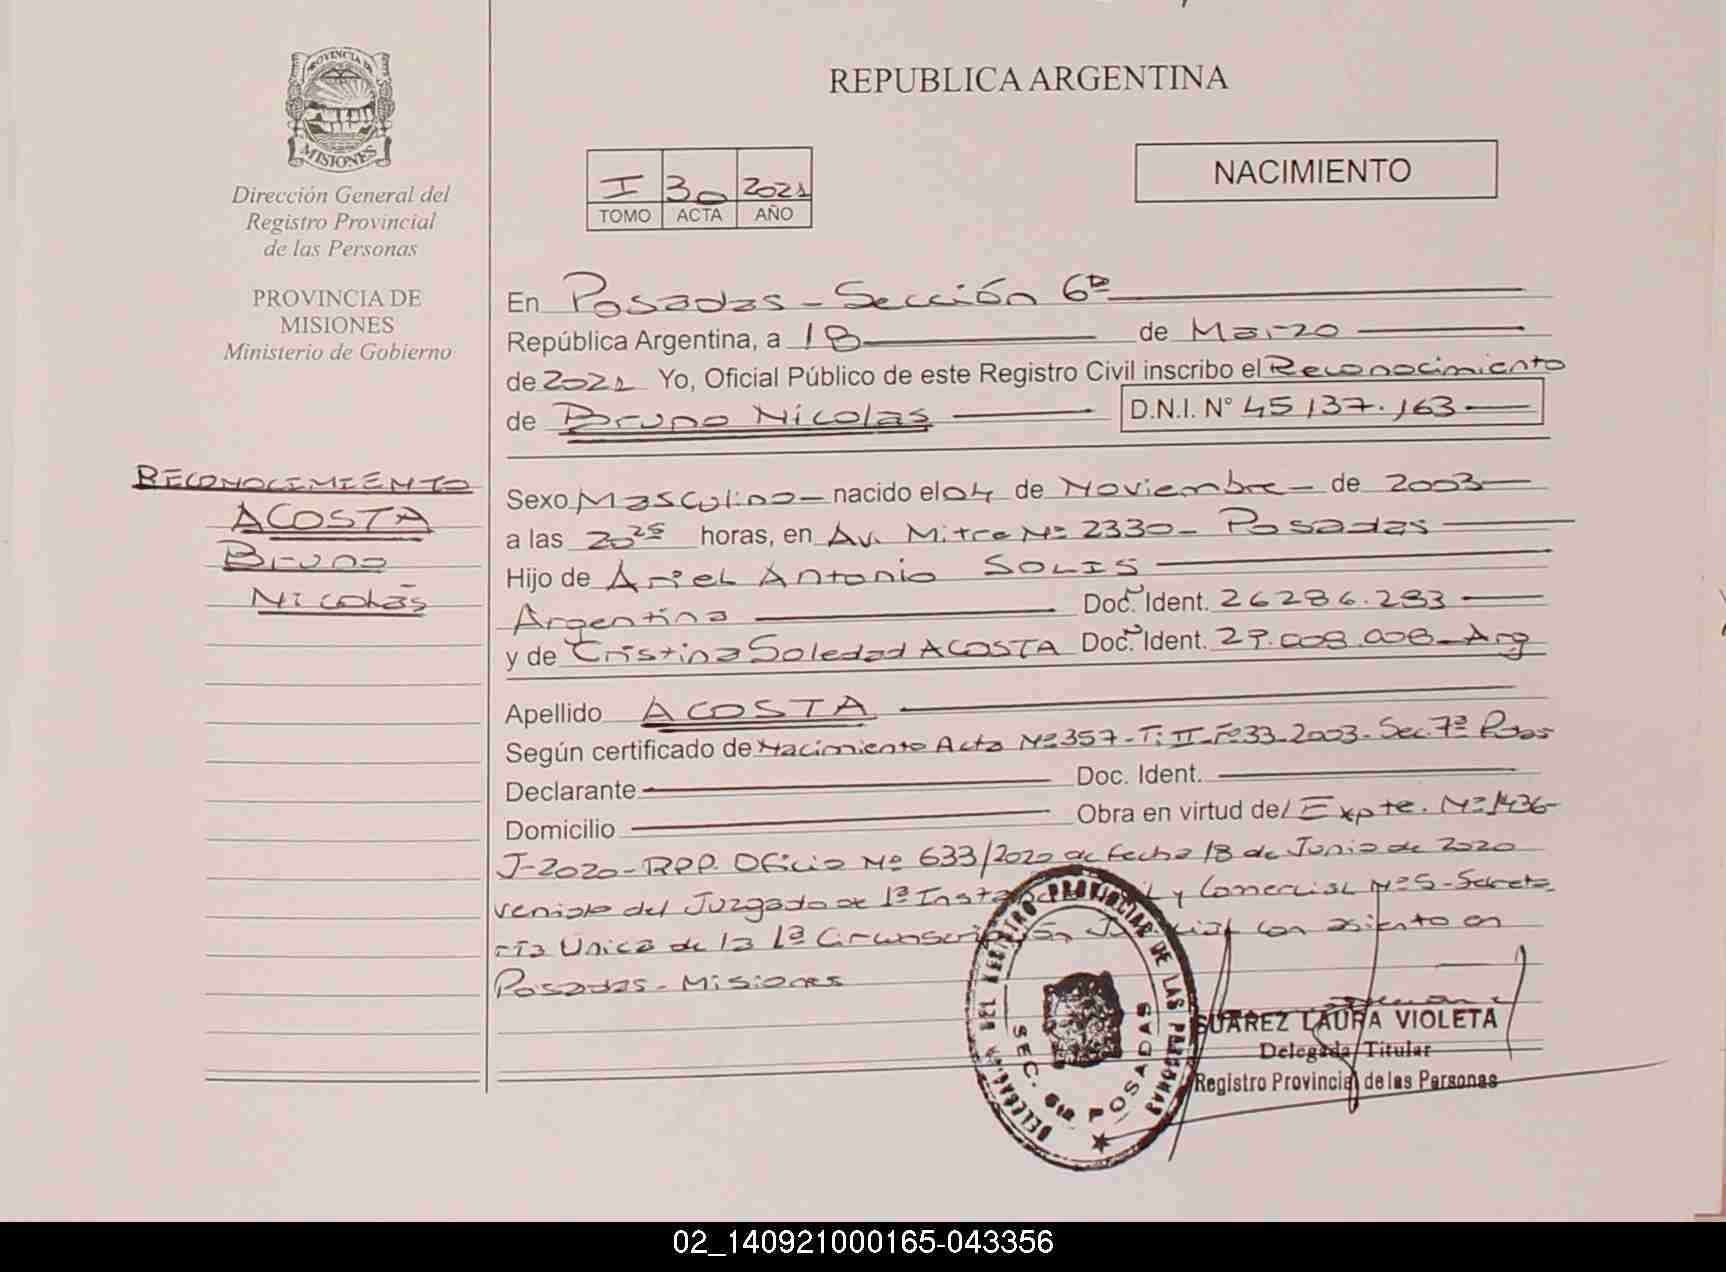 PROVINCIA DE
MISIONES
Dirección General del
Registro Provincial
de las Personas
PROVINCIA DE
MISIONES
Ministerio de Gobierno
RECONOCIMIENTO
ACOSTA
Bruno
Nicolás
REPUBLICA ARGENTINA
I 30 2021
TOMO ACTA AÑO
NACIMIENTO
En Posadas - Sección 6ta
República Argentina, a 18 de Marzo
de 2021 Yo, Oficial Público de este Registro Civil inscribo el Reconocimiento
de Bruno Nicolas D.N.I. N° 45137.163
Sexo Masculino nacido el 04 de Noviembre de 2003
a las 20 25 horas, en Av. Mitre Nº 2330 - Posadas
Hijo de Ariel Antonio SOLIS
Argentina Doc. Ident. 26286.283
y de Cristina Soledad ACOSTA Doc. Ident. 29.008.008 - Arg
Apellido ACOSTA
Según certificado de Nacimiento Acta Nº 357 - T: II - Fº 33 - 2003 - Sec. 7ª Posas
Declarante Doc. Ident.
Domicilio Obra en virtud del Expte. Nº 1436-
J-2020 - RPP. Oficio Nº 633/2020 de fecha 18 de Junio de 2020
venido del Juzgado de 1ª Insta y Comercial Nº 5 - Secreta
ría Única de la 1ª Circunscripción Judicial con asiento en
Posadas - Misiones
DELEGADA DEL REGISTRO PROVINCIAL DE LAS PERSONAS
SEC. 6ta POSADAS
SUAREZ LAURA VIOLETA
Delegada Titular
Registro Provincial de las Personas
02_140921000165-043356